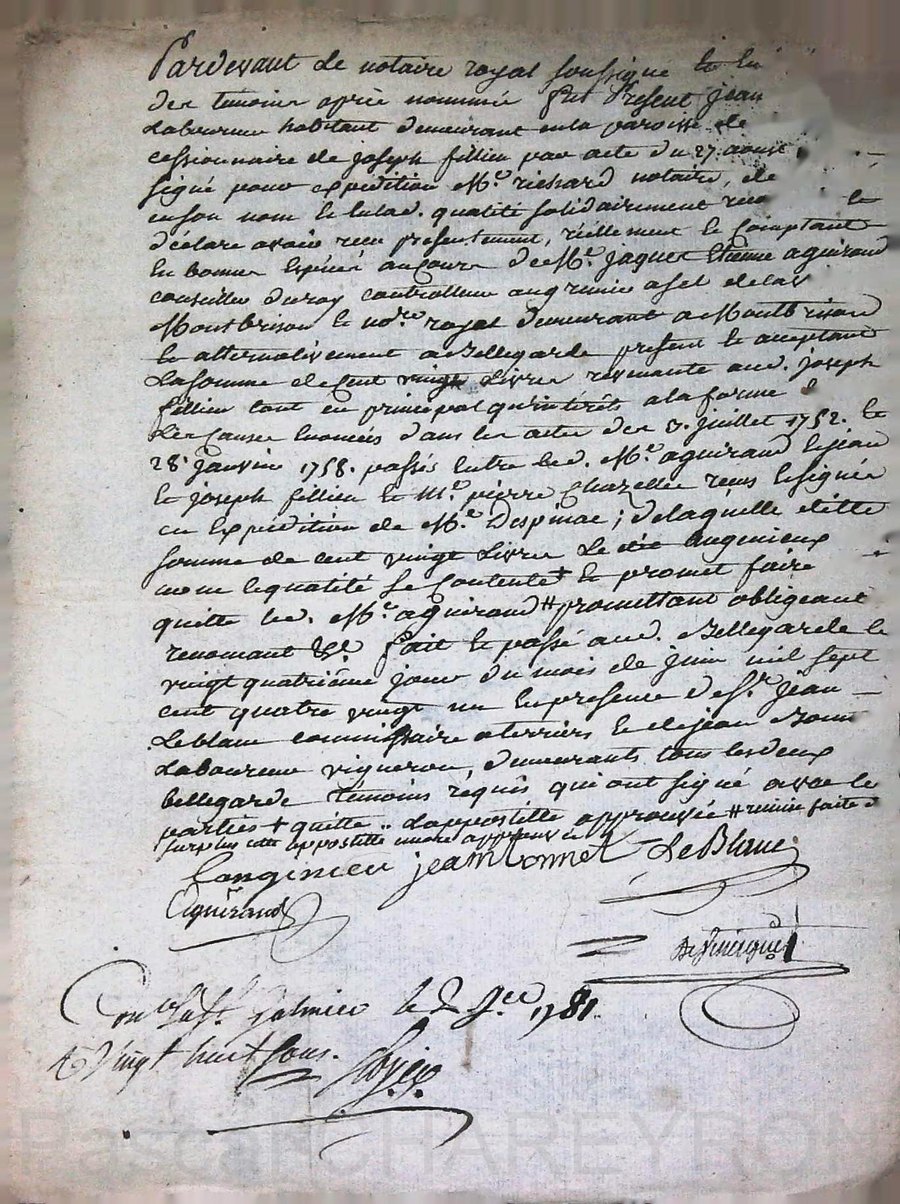 Pardevant Le notaire royal soussigné Et En
des temoins après nommés fut Present jean
Laboureur habitant demeurant en la paroisse de
cessionnaire de joseph fillieu par acte du 27 aoust
signé pour expedition Me. richard notaire, de
en son nom Et Lulad. qualité solidairement
déclare avoir reçu presentement, réellement Et Comptant
En bonnes Espéces au cours de Me. jaques Etienne aguiraud
conseiller du roy controlleur au grenier a sel de lav
Montbrison Et nore. royal demeurant a Montbrison
Et alternativement a Bellegarde present Et acceptant
La somme de Cent vingt Livres restante aud. joseph
fillieu tant en principal qu'intérêts a la forme &
Les Causes Enoncées dans les actes des 3. juillet 1752. Et
28. janvier 1758. passés Entre led. Me. aguiraud Lejean
Et joseph fillieu Et Me. pierre Chazelle reçus Et signés
en Expedition de Me. Despinac; de laquelle ditte
somme de cent vingt Livres Le dit Langenieux
nom Et qualité Se Contente + Et promet faire
quitte led. Me. aguiraud # promettant obligeant
renonçant &c. fait Et passé aud. Bellegarde Le
vingt quatriême jour du mois de juin mil sept
cent quatre vingt un En presence de Sr. jean
Leblanc commissaire a terriers Et de jean Bonn
Laboureur vigneron, demeurants tous les deux
bellegarde témoins requis qui ont signé avec les
parties + quitte .. Lapostille approuvée # remise faite d
surplus cette appostille encore approuvée
Langenieu jean bonnet LeBlanc
Aguiraud
Conlé a St. Galmier le 2 1781.
R vingt huit sous.
Pascal CHAREYRON